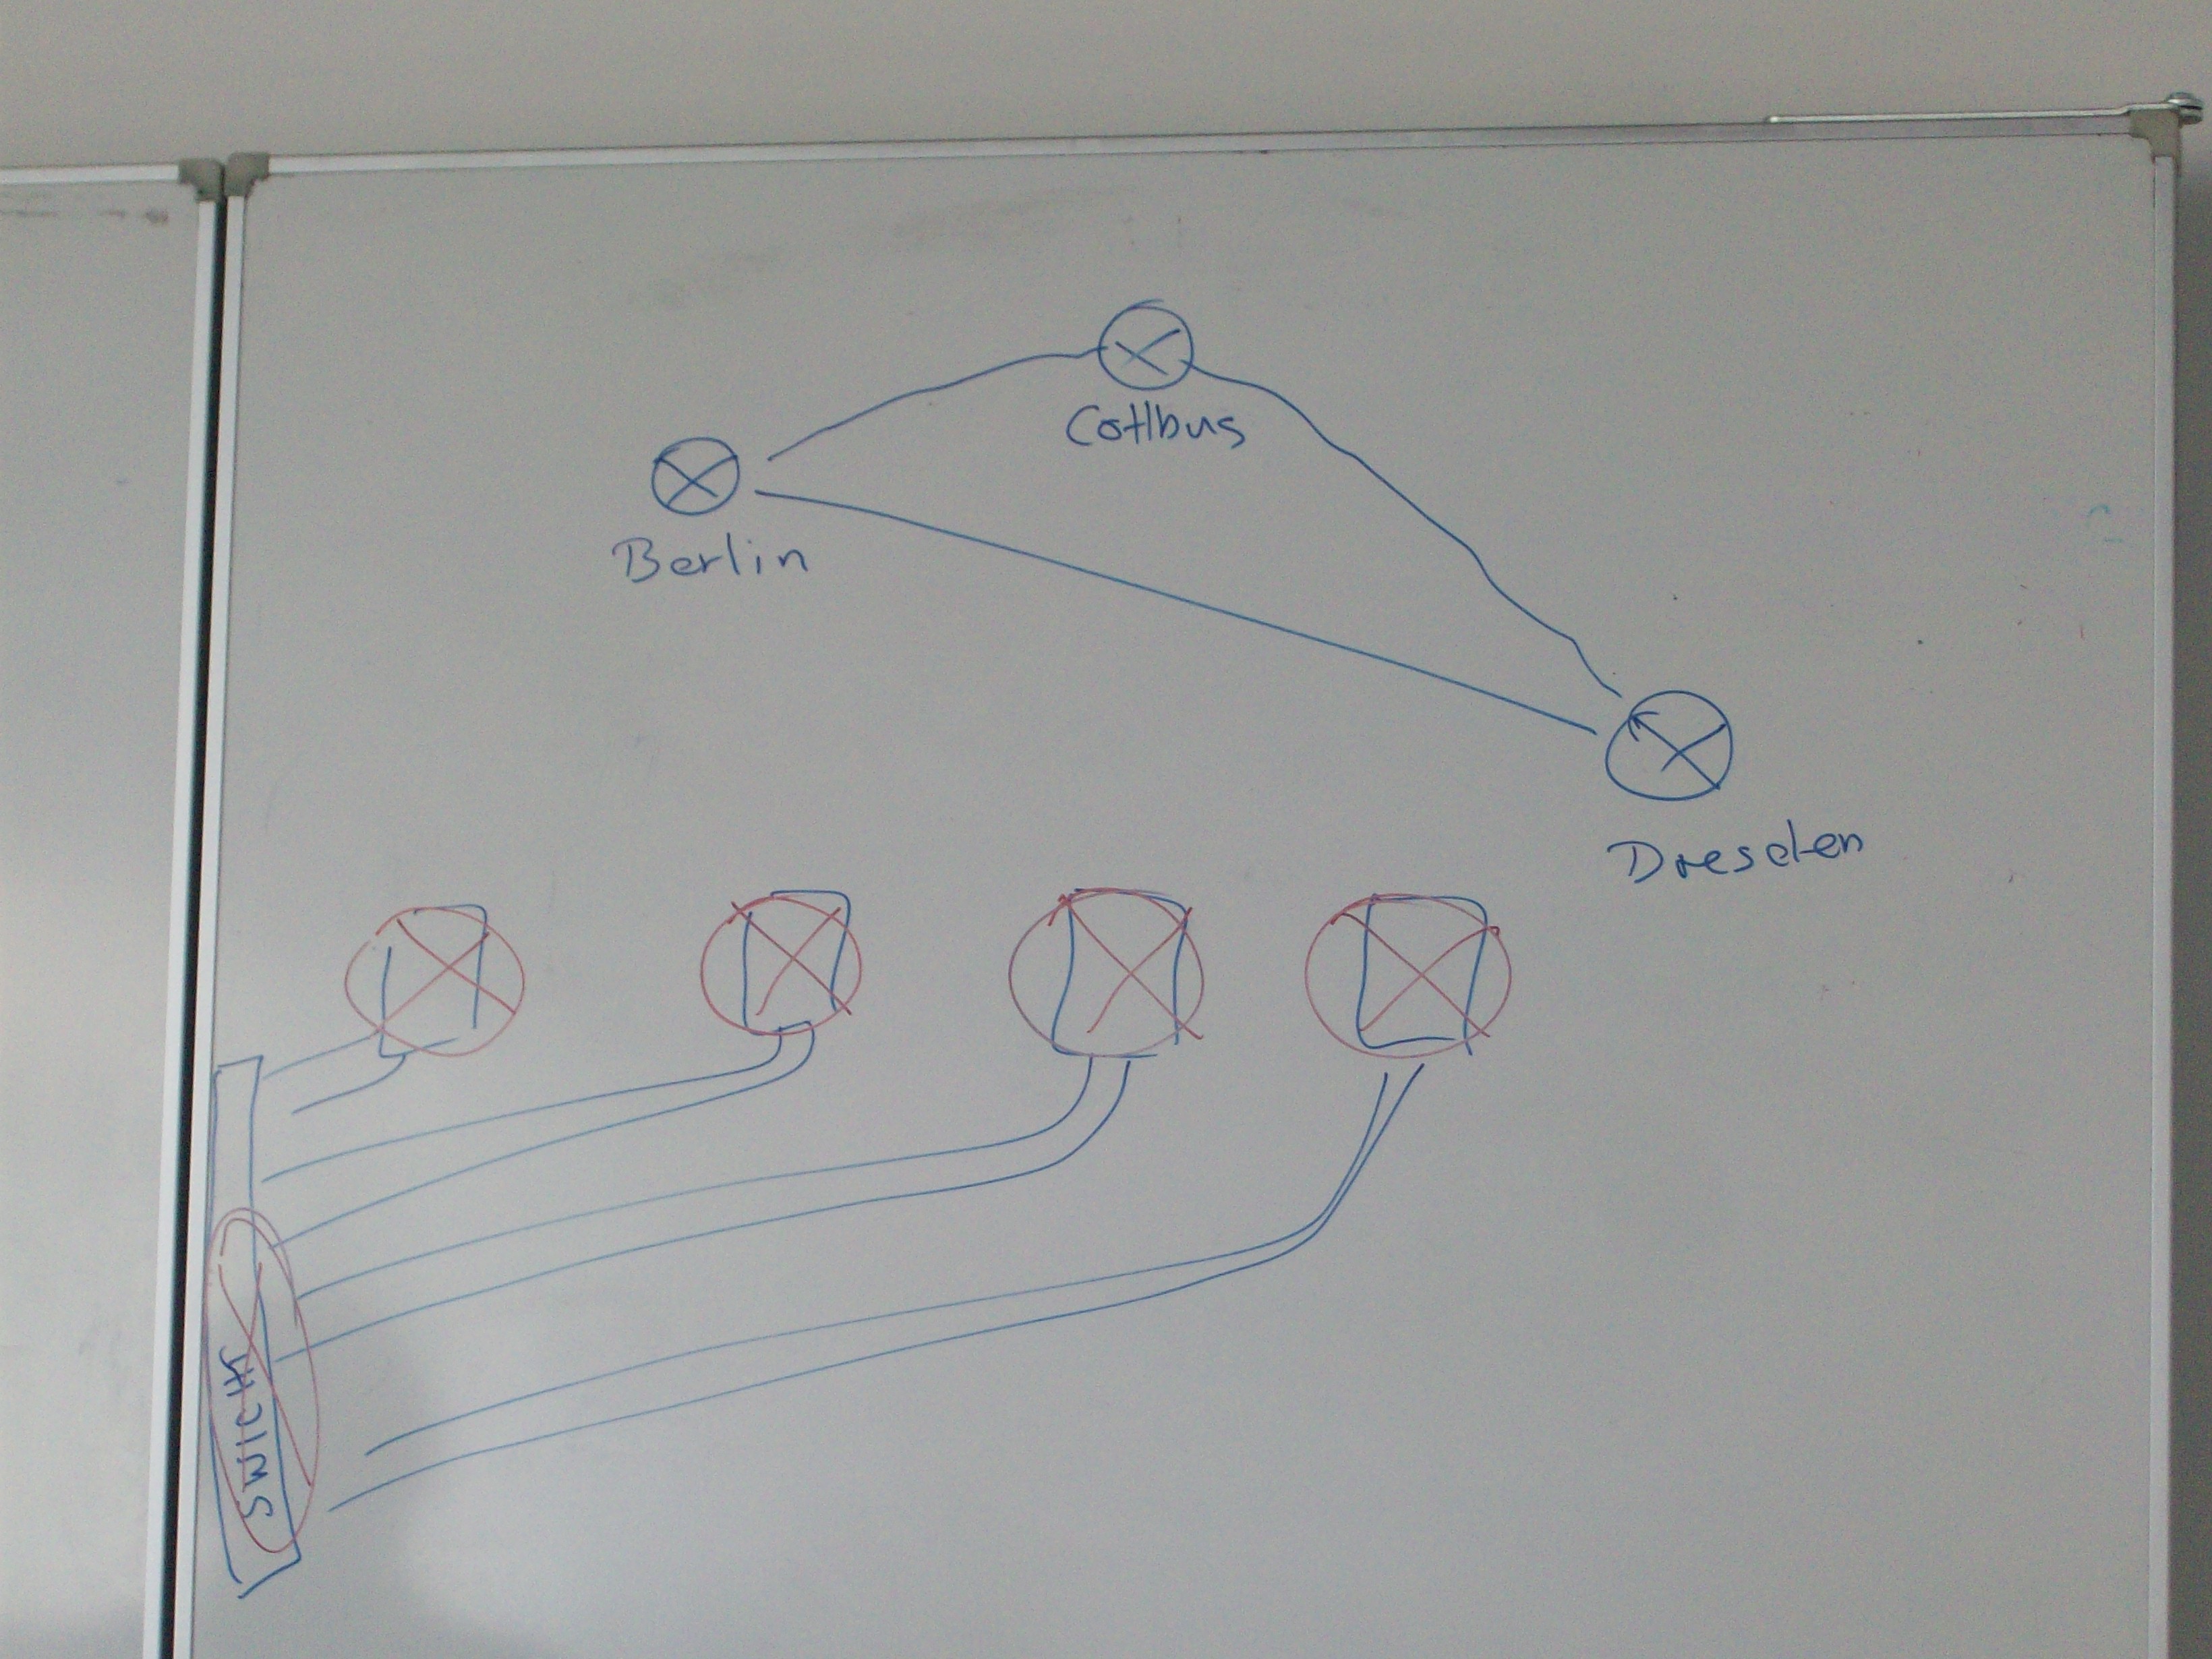 Cottbus
Berlin
Dresden
SWITCH